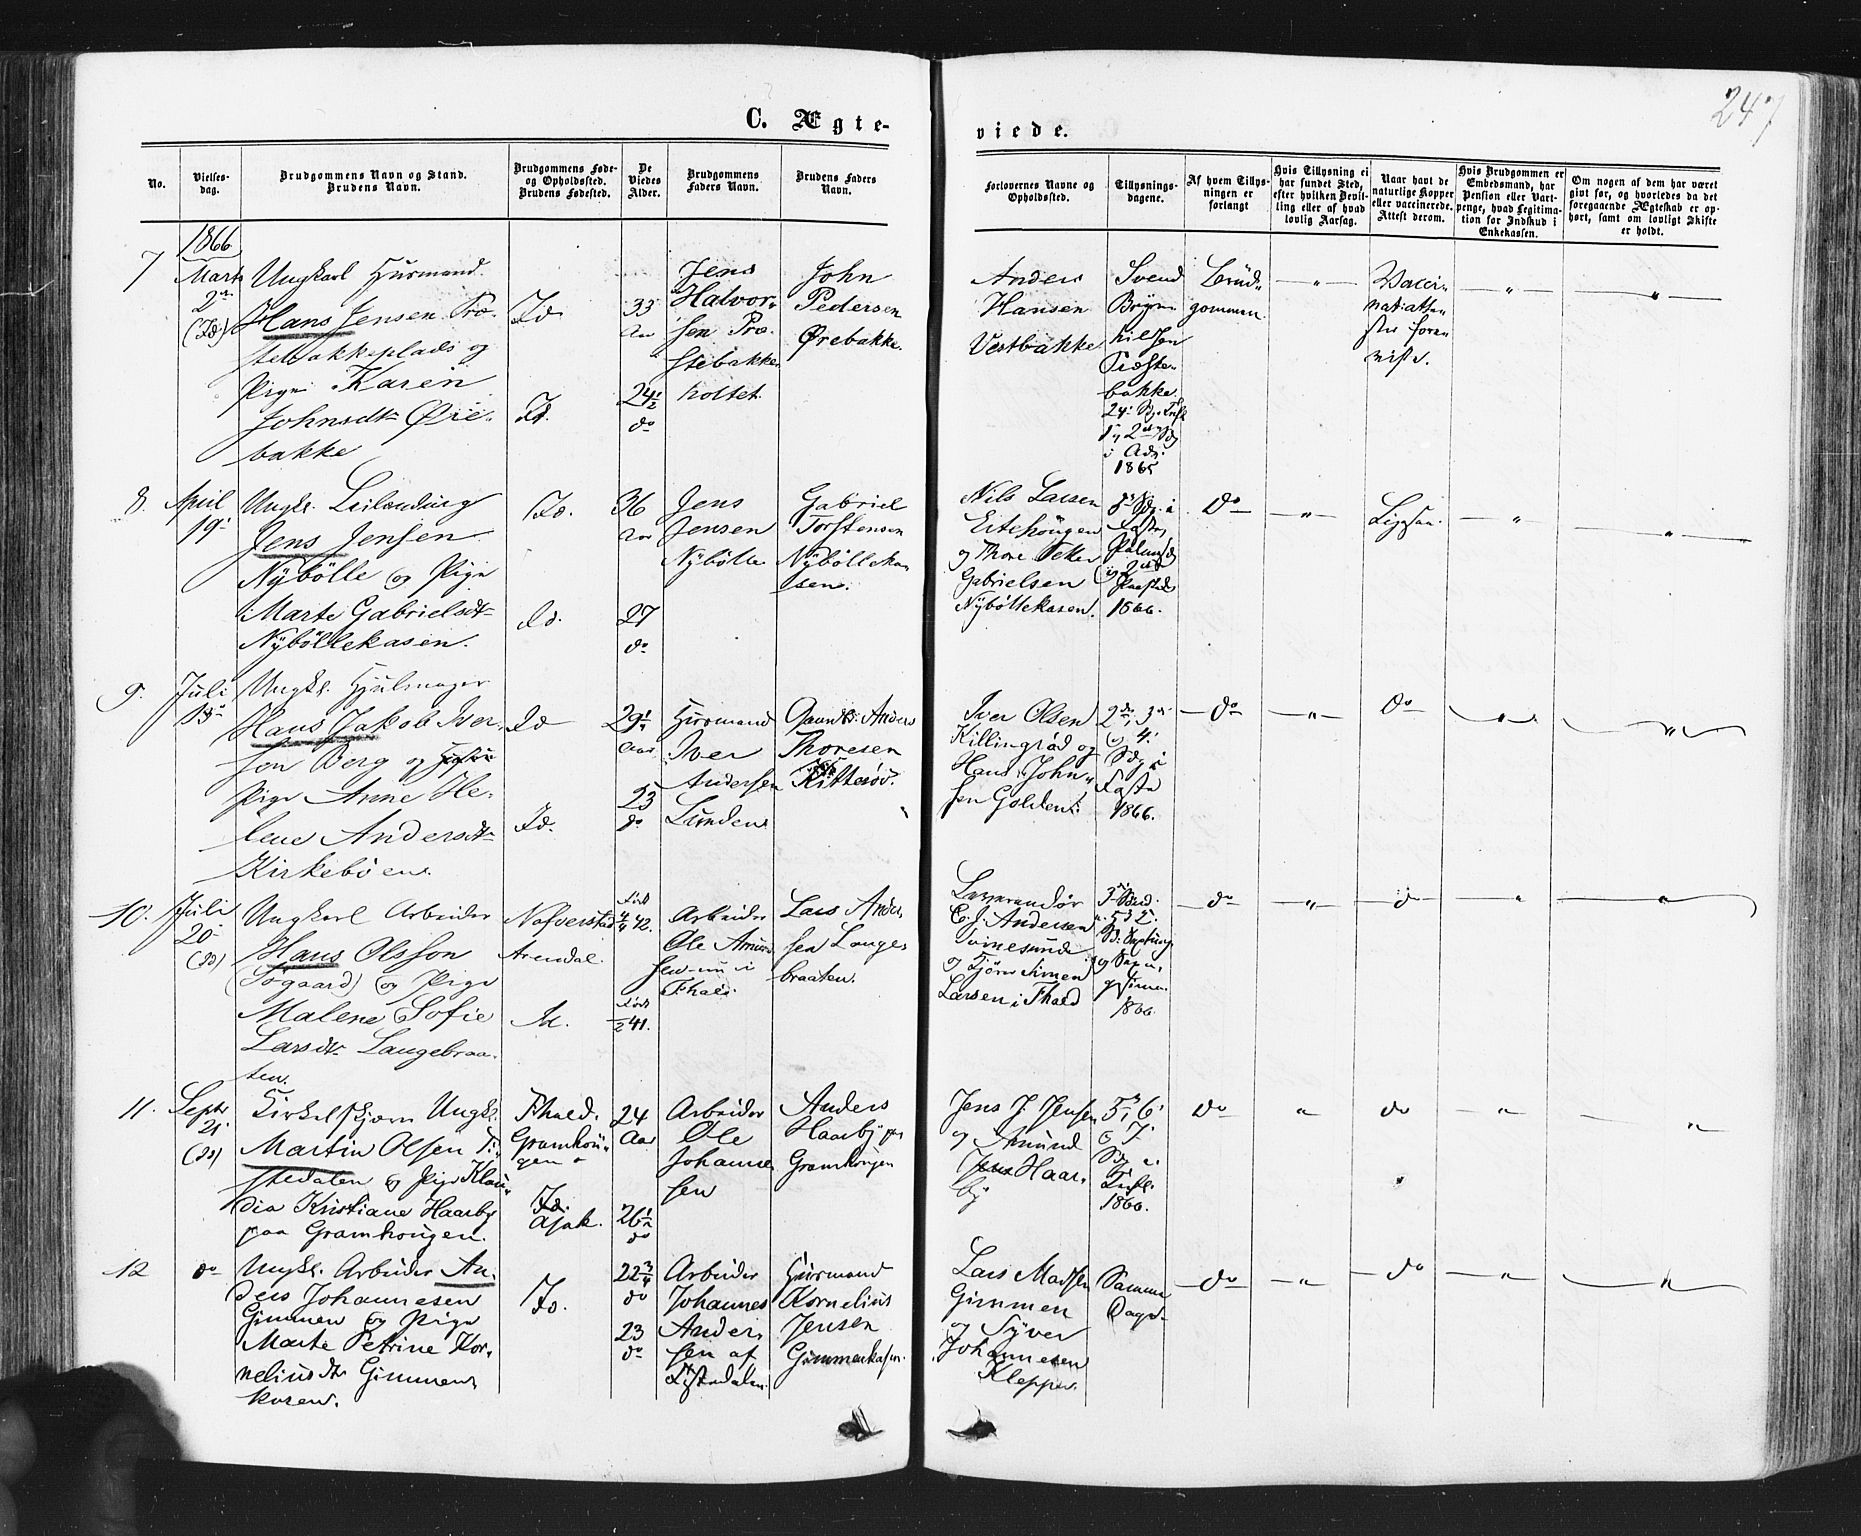 247
C. Ægte-
viede.
No.
Vielses-
dag.
Brudgommens Navn og Stand.
Brudens Navn.
Brudgommens Føde-
og Opholdssted.
Brudens Fødested.
De
Viedes
Alder.
Brudgommens
Faders Navn.
Brudens Faders
Navn.
Forlovernes Navne og
Opholdssted.
Tillysnings-
dagene.
Af hvem Tillys-
ningen er
forlangt
Hvis Tillysning ei
har fundet Sted,
efter hvilken Bevil-
ling eller af hvad
lovlig Aarsag.
Naar havt de
naturlige Kopper
eller vaccinerede.
Attest derom.
Hvis Brudgommen er
Embedsmand, har
Pension eller Vart-
penge, hvad Legitima-
tion for Indskud i
Enkekassen.
Om nogen af dem har været
givt før, og hvorledes da det
foregaaende Ægteskab er op-
hørt, samt om lovligt Skifte
er holdt.
1866
7
Marts
2
(Id)
Ungkarl Husmand
Hans Jensen Præ-
stebakkeplads og
Pige Karen
Johnsdtr Øre-
bakke
Id
Id.
33
Aar
24½
do
Jens
Halvor-
sen Præ-
stebakke
holtet
John
Pedersen
Ørebakke.
Anders
Hansen
Vestbakke
Svend
Bryn-
hilsen
Præste-
bakke.
i Adv.
1865
Brud-
gommen
Vacci-
natiatte-
ster fore-
viste.
8.
April
19
Ungk. Leilending
Jens Jensen
Nybölle og Pige
Marte Gabrielsdtr
Nybøllekasen.
Id.
Id.
36
Aar
27
do
Jens
Jensen
Nybölle
Gabriel
Torstensen
Nybølleka-
sen.
Nils Larsen
Ertehougen
og Thore
Gabrielsen
Nybøllekasen.
1866.
do
Ligesaa
9.
Juli
13
Ungk. Hjulmager
Hans Jakob Iver-
sen Berg og
Pige Anne He-
lene Andersdtr
Kirkebøen.
Id
Id.
29½
Aar
23
do
Husmand
Iver
Andersen
Lunden
Gaardb. Anders
Thoresen
Kitterød.
Iver Olsen
Killingrød og
Hans John-
sen Golden
2den, 3die
og 4.
Sdg i
Faste
1866.
do
do
10.
Juli
20
(Id)
Ungkarl Arbeider
Hans Olsson
(Søgaard) og Pige
Malene Sofie
Larsdtr Langebraa-
ten.
Arendal.
Id.
født
4/4 42.
født
41.
Arbeider
Ole Amund-
sen nu i
Fhald.
Lars Ander-
sen Lange-
braaten.
C. J. Andersen
Svinesund
og Simen
Larsen i Fhald
1866.
do
do
11.
Septr
21
(Id)
Ungk.
Martin Olsen Ti-
stedalen og Pige Klau-
dia Kristiane Haarby
paa Gramhougen.
Fhald.
Gramhou-
gen
Id.
Asak.
24
Aar
26½
do
Arbeider
Ole
Johanne-
sen
Anders
Haarby paa
Gramhougen
Jens J. Jensen
og Amund
Haar-
by
5, 6
og 7
Sdg e.
1866.
do
do
12
do
Ungk. Arbeider An-
ders Johannesen
Gimmen og Pige
Marte Petrine Kor-
neliusdtr Gimmen-
kasen.
Id.
22¾
do
23
do
Arbeider
Johannes
Ander-
sen af
Tistedalen
Husmand
Kornelius
Jensen
Gimmenkasen.
Lars Madsen
Gimmen
og Syver
Johannesen
Klepper
Samme
Dage
do
do